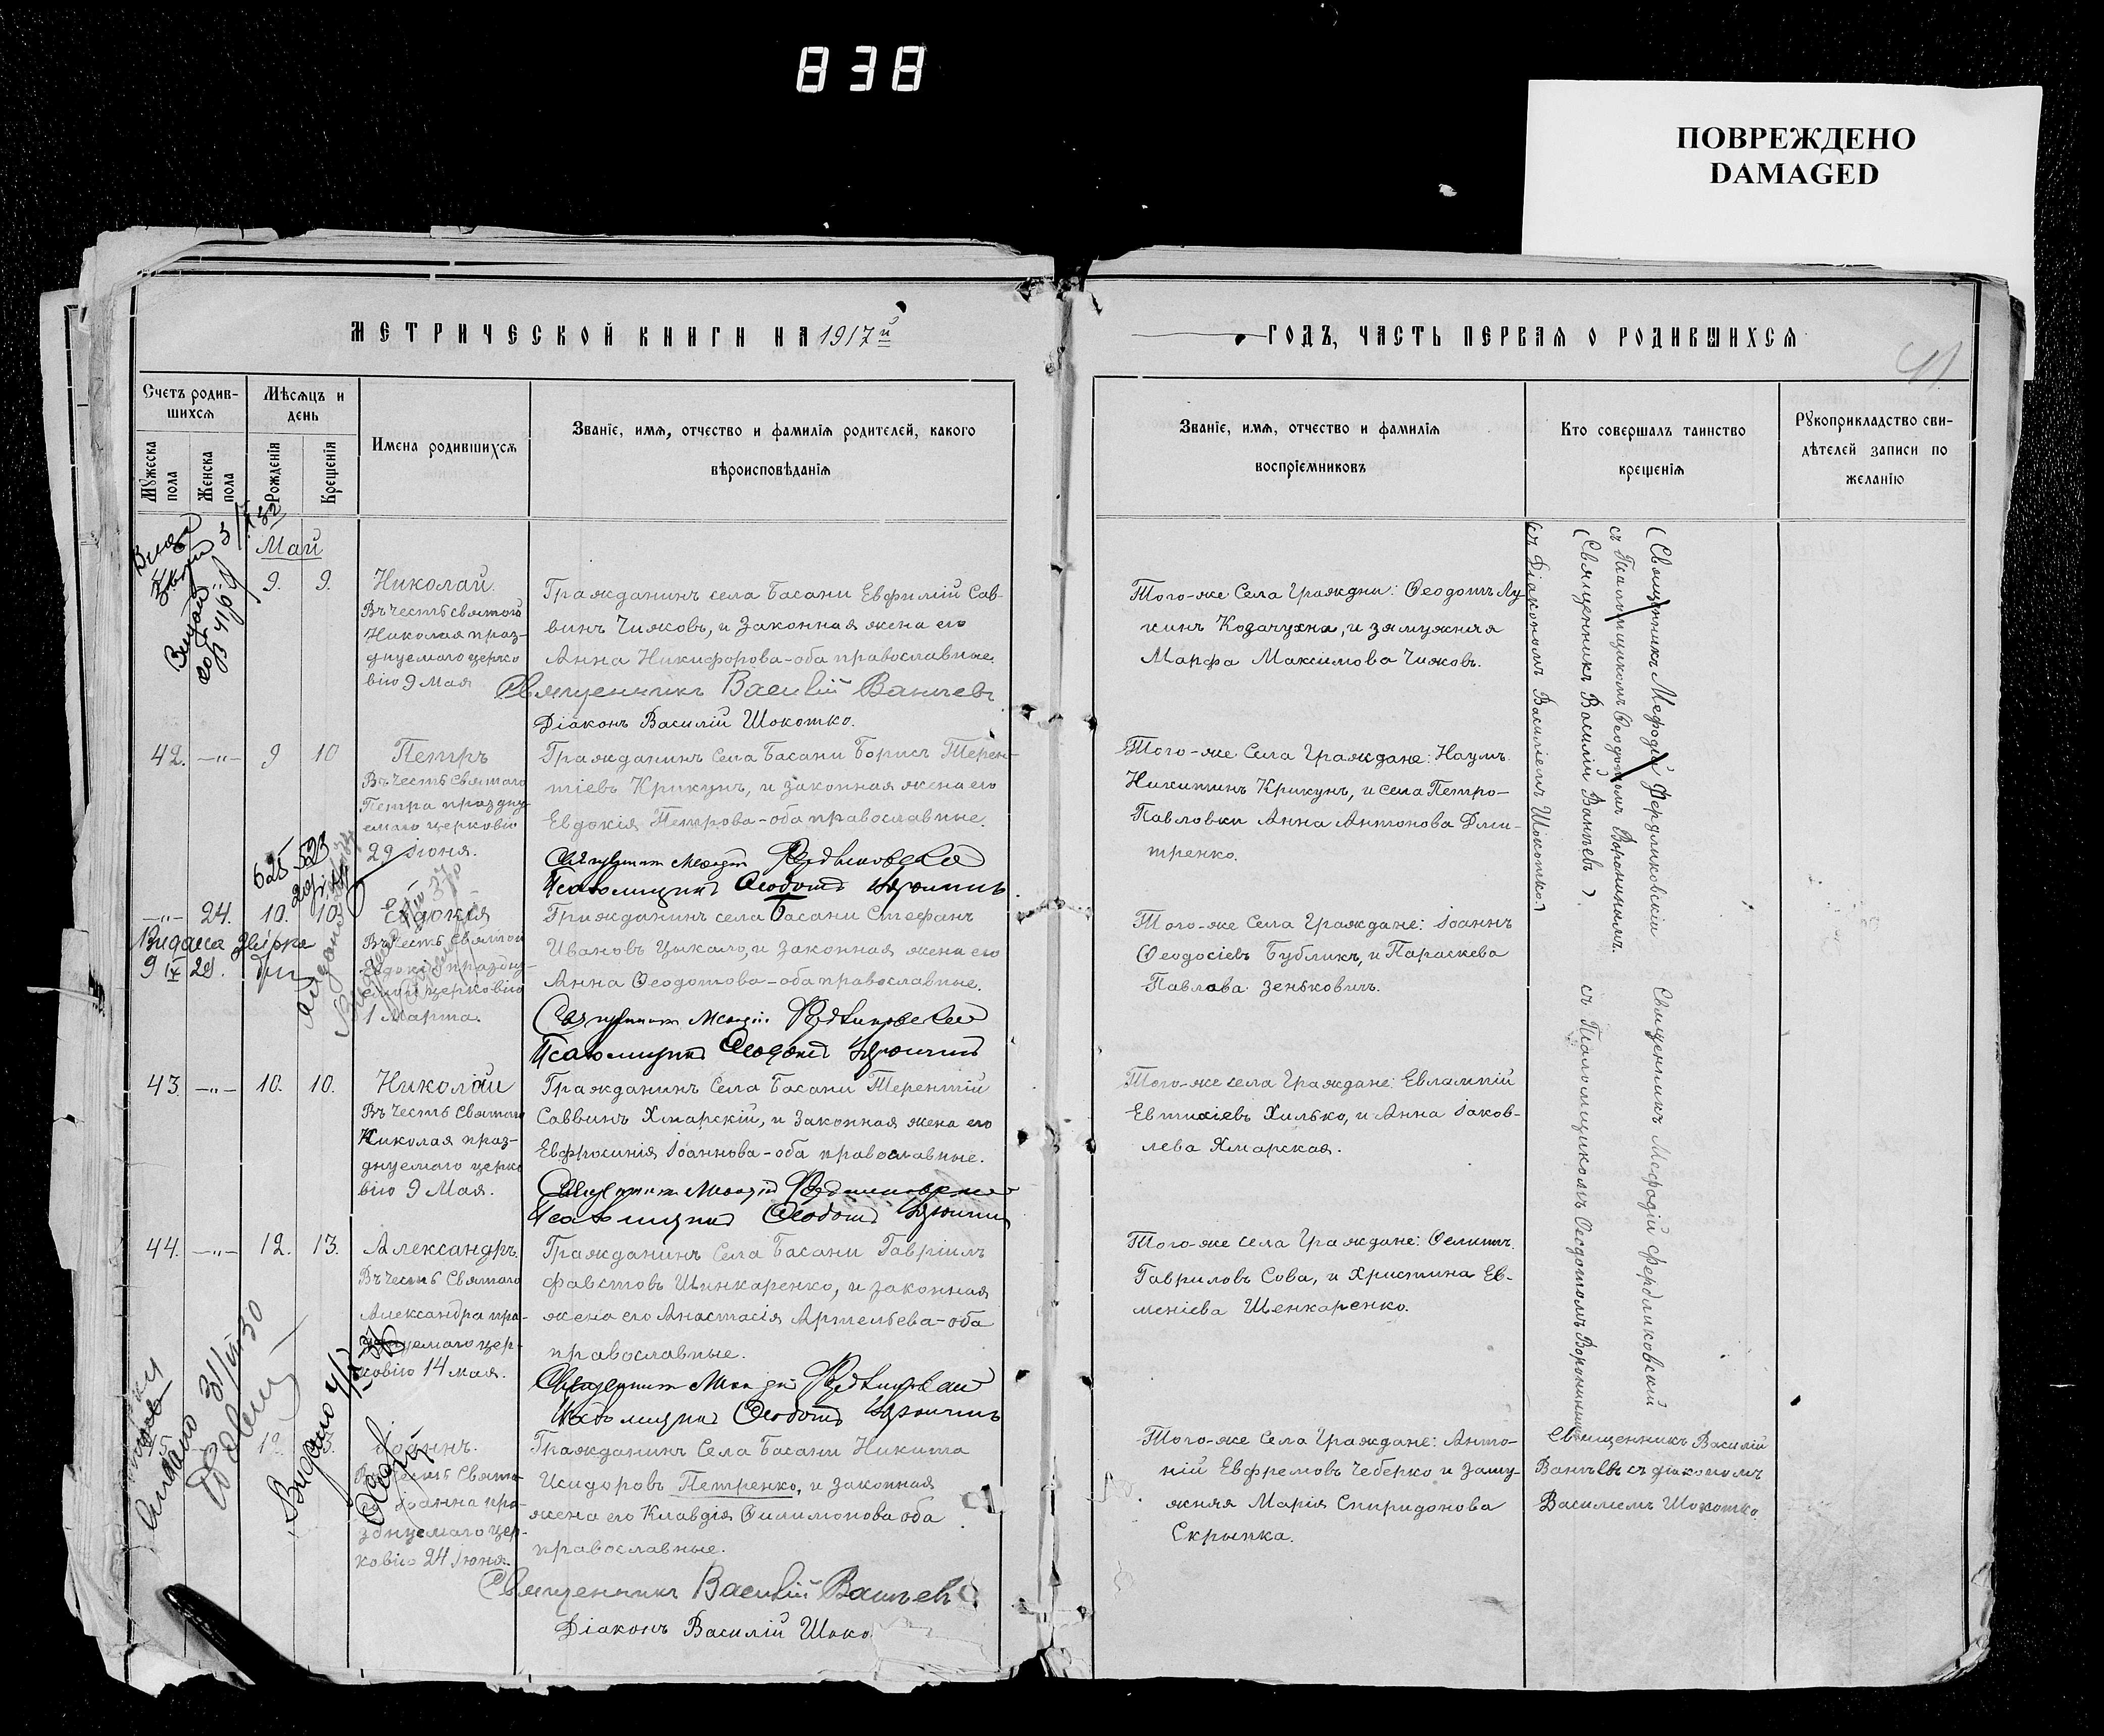 838
ПОВРЕЖДЕНО
DAMAGED
МЕТРИЧЕСКОЙ КНИГИ НА 1917й
ГОДЪ, ЧАСТЬ ПЕРВАЯ О РОДИВШИХСЯ
41
Счетъ родив-
шихся
Мужеска
пола
Женска
пола
Мѣсяцъ и
день
Рожденія
Крещенія
Имена родившихся
Званіе, имя, отчество и фамилія родителей, какого
вѣроисповѣданія
Званіе, имя, отчество и фамилія
воспріемниковъ
Кто совершалъ таинство
крещенія
Рукоприкладство сви-
дѣтелей записи по
желанію
Май
9. 9. Николай.
Въ честь святого
Николая праз-
днуемаго церко
вію 9 Мая
Гражданинъ села Басани Евфимій Сав-
винъ Чижовъ, и законная жена его
Анна Никифорова-оба православные.
Священникъ Василій Ванчевъ
Діаконъ Василій Шокотко.
Того-же Села Граждни: Ѳеодотъ Лу-
кинъ Козачухна, и замужняя
Марфа Максимова Чижовъ.
(Священникъ Мефодій Фердликовскій
съ Псаломщикомъ Ѳеодотомъ Воронинымъ.
(Священникъ Василій Ванчевъ)
съ Діакономъ Василіемъ Шокотко.)
42. —"— 9 10 Петръ
Въ честь Святаго
Петра праздну-
емаго церковію
29 Іюня.
Гражданинъ Села Басани Борисъ Терен-
тіевъ Крикунъ, и законная жена его
Евдокія Петрова-оба православные.
Псаломщикъ Ѳеодотъ Воронинъ
Того-же Села Граждане: Наумъ
Никитинъ Крикунъ, и села Петро-
Павловки Анна Антонова Дми-
тренко.
—"— 24. 10. 10. Евдокія
Въ честь Святой
Евдокіи праздну-
емой церковію
1 Марта.
Гражданинъ села Басани Стефанъ
Ивановъ Цыкало, и законная жена его
Анна Ѳеодотова-оба православные.
Псаломщикъ Ѳеодотъ Воронинъ
Того-же Села Граждане: Іоаннъ
Ѳеодосіевъ Бубликъ, и Параскева
Павлова Зеньковичъ.
43. —"— 10. 10. Николай
Въ честь Святаго
Николая праз-
днуемаго церко
вію 9 Мая.
Гражданинъ Села Басани Терентій
Саввинъ Хмарскій, и законная жена его
Евфросинія Іоаннова-оба православные.
Псаломщикъ Ѳеодотъ Воронинъ
Того-же села Граждане: Евлампій
Евтихіевъ Хилько, и Анна Іаков-
лева Хмарская.
Священникъ Мефодій Фердликовскій
съ Псаломщикомъ Ѳеодотомъ Воронинымъ
44. —"— 12. 13. Александръ.
Въ честь Святаго
Александра пра-
зднуемаго цер-
ковію 14 мая.
Гражданинъ Села Басани Гавріилъ
Фавстовъ Шинкаренко, и законная
жена его Анастасія Артемьева-оба
православные.
Псаломщикъ Ѳеодотъ Воронинъ
Того-же села Граждане: Ѳеликсъ
Гавриловъ Сова, и Христина Ев-
меніева Шенкаренко.
Іоаннъ.
Въ честь Свята-
го Іоанна пра-
зднуемаго цер-
ковію 24 Іюня.
Гражданинъ Села Басани Никита
Исидоровъ Петренко, и законная
жена его Клавдія Филимонова оба
православные.
Священникъ Василій Ванчевъ
Діаконъ Василій Шоко
Того-же Села Граждане: Анто-
ній Евфремовъ Чеберко и заму-
жняя Марія Спиридонова
Скрыпка.
Священникъ Василій
Ванчевъ съ діакономъ
Василіемъ Шокотко.